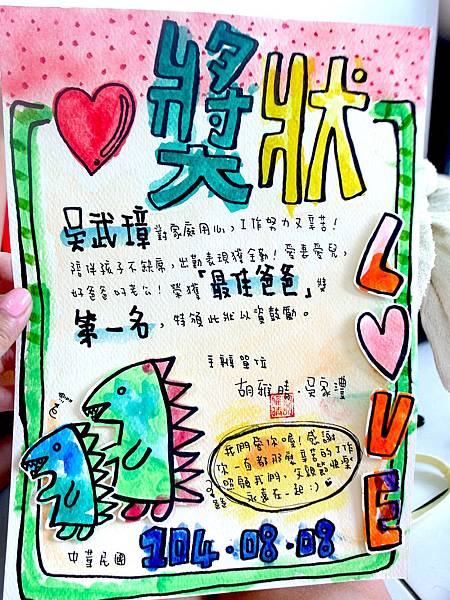 獎狀
吳武璋 對家庭用心，工作努力又辛苦！
陪伴孩子不缺席，出勤表現獲全勤！愛妻愛兒，
好爸爸好老公！榮獲「最佳爸爸」獎
第一名，特頒此狀以資鼓勵。
主辦單位
胡雅晴．吳家灃
LOVE
我們愛你喔！感謝
你一直都那麼辛苦的工作
照顧我們，父親節快樂
永遠在一起:)
中華民國 104.08.08